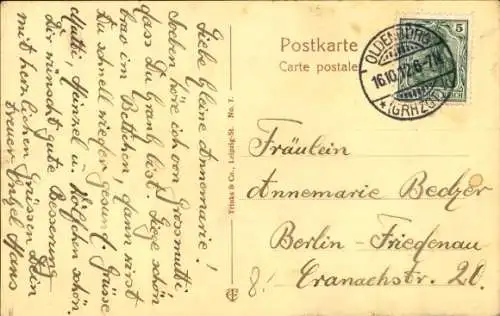 Postkarte
Carte postale
OLDENBURG
16.10.12. 6-7N
* (GRHZGT.)
5
Fräulein
Annemarie Bedzer
Berlin-Friedenau
Cranachstr. 20.
8.
Trinks & Co., Leipzig-St. No. 7.
Liebe kleine Annemarie!
Soeben höre ich von Grossmutti,
dass Du krank bist. Liege schön
brav im Bettchen, dann wirst
Du schnell wieder gesund. Grüsse
Mutti, Heinzel u. Wölfchen schön.
Dir wünscht gute Besserung
mit herzlichen Grüssen Dein
treuer Onkel Hans